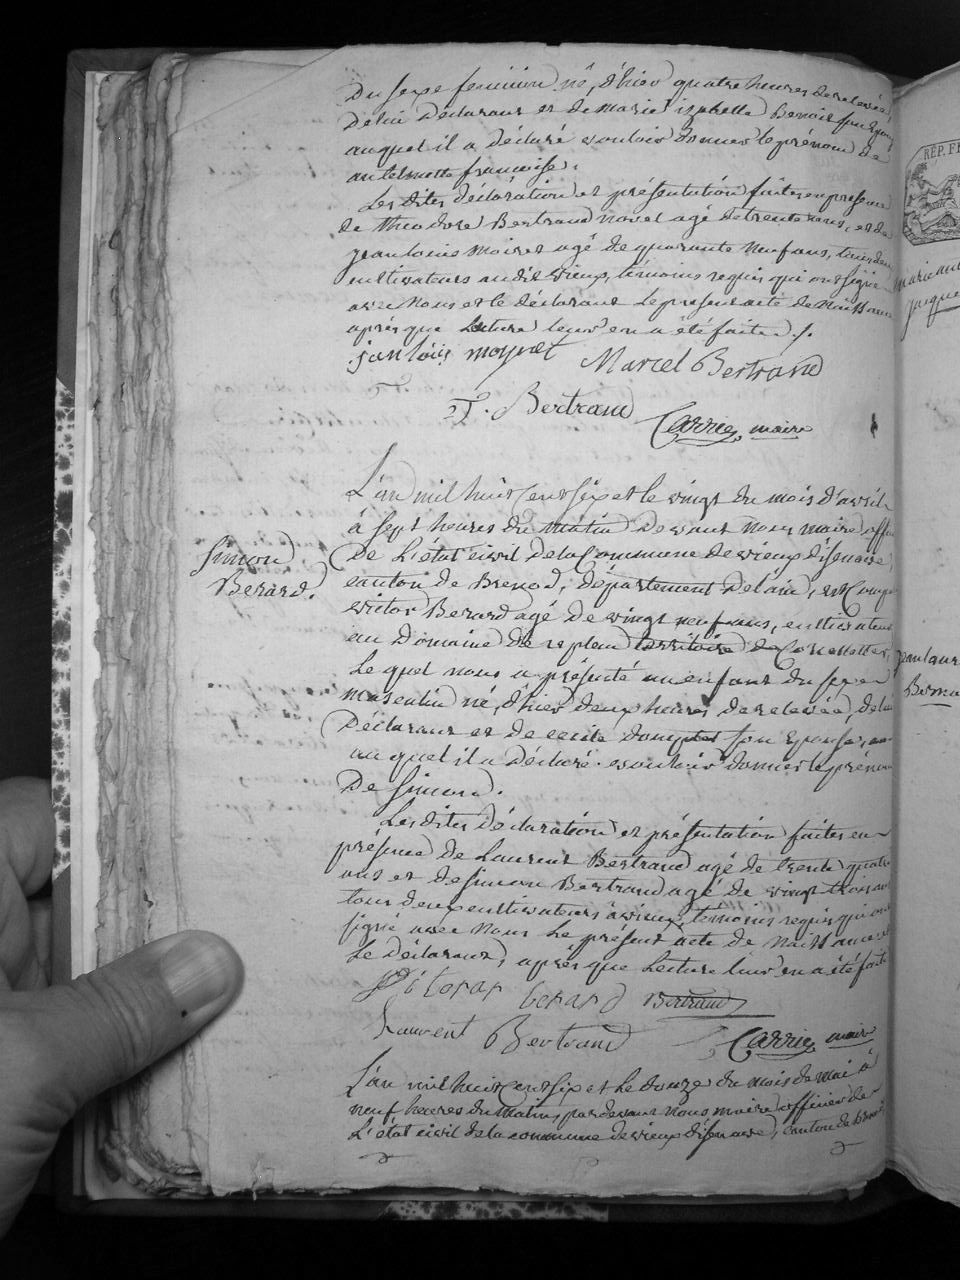 du sexe feminin né, d'hier quatre heures de relevée,
de lui déclarant et de marie izabelle Benoit son Epouse
auquel il a déclaré vouloir donner le prénom de
antelmette françoise.
Les dites déclaration et présentation faites en presence
de théodore Bertrand novel agé de trente ans, et de
jean louis moiret agé de quarante neuf ans, tous deux
cultivateurs audit vieux, témoins requis qui ont signé
avec nous et le déclarant le present acte de naissance
après que Lecture leur en a été faite ./.
jan loüis moyret Marcel Bertrand
T. Bertrand
Carrier, maire
L'an mil huit cent six et le vingt du mois d'avril
à sept heures du matin devant nous maire offi
Simon
de L'état civil de la Commune de vieux disenave,
Berard.
canton de Brenod, département de l'ain, est Comp
victor Berard agé de vingt neuf ans, cultivateur
au Domaine de replan territoire de
Le quel nous a présenté un enfant du sexe
masculin né, d'hier deux heures de relevée, de lui
Déclarant et de cecile son Epouse,
au quel il a déclaré vouloir donner le prénom
de Simon.
Les dites déclaration et présentation faites en
présence de Laurent Bertrand agé de trente quatre
ans et de simon Bertrand agé de vingt trois ans
tous deux cultivateurs à vieux, témoins requis qui ont
signé avec nous Le présent acte de naissance et
Le déclarant, après que Lecture leur en a été faite
berard Bertrand
Laurent Bertrand Carrier, maire
L'an mil huit cent six et le douze du mois de mai à
neuf heures du matin, par devant nous maire officier de
L'état civil de la commune de vieux disenave, canton de Brenod
RÉP. F